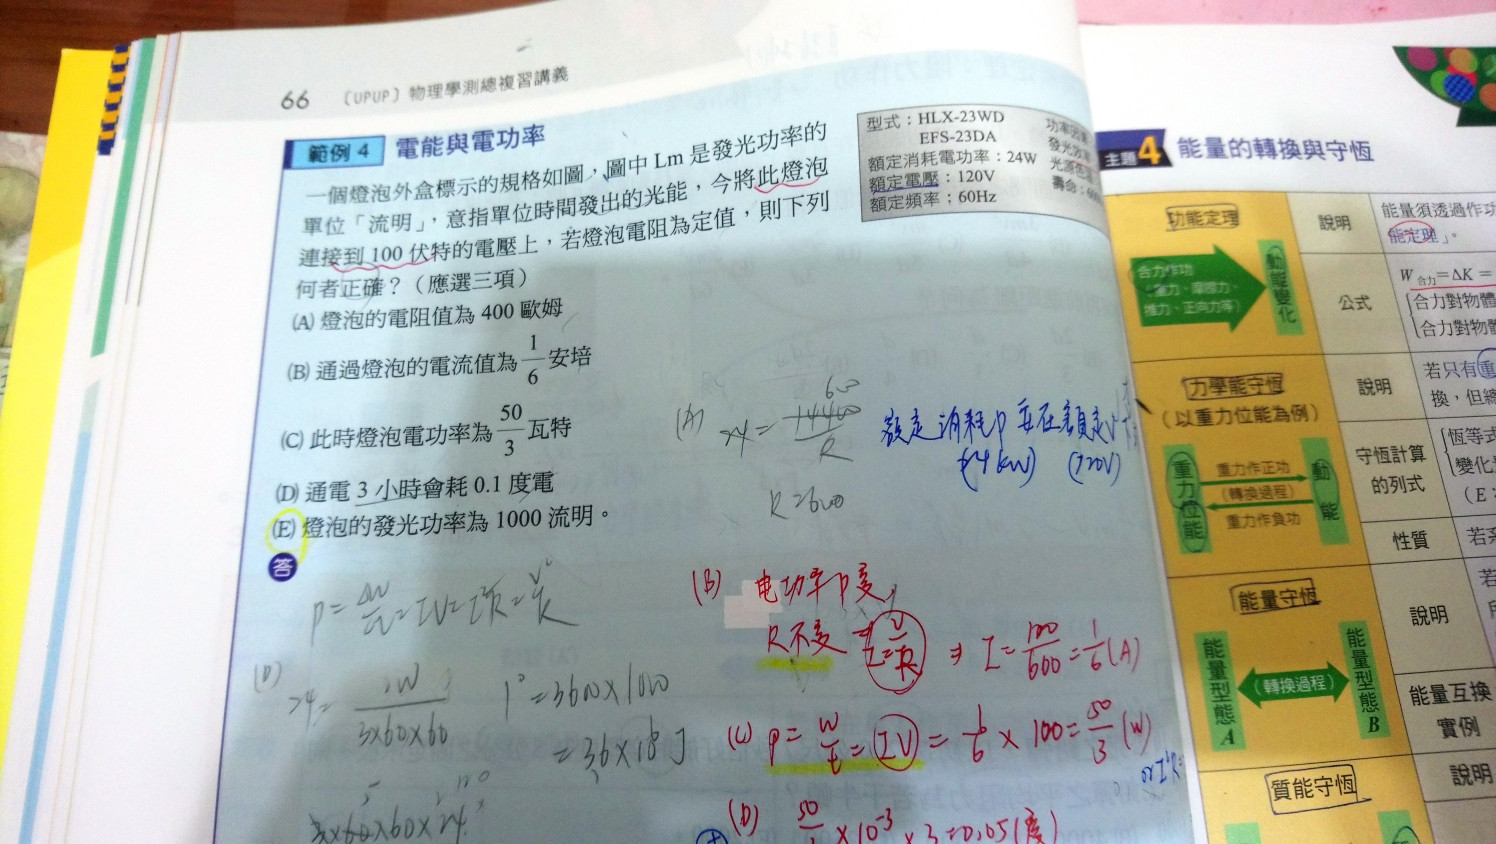 66 〔UPUP〕物理學測總複習講義
範例 4 電能與電功率
一個燈泡外盒標示的規格如圖，圖中 Lm 是發光功率的
單位「流明」，意指單位時間發出的光能，今將此燈泡
連接到 100 伏特的電壓上，若燈泡電阻為定值，則下列
何者正確？（應選三項）
(A) 燈泡的電阻值為 400 歐姆
(B) 通過燈泡的電流值為 1/6 安培
(C) 此時燈泡電功率為 50/3 瓦特
(D) 通電 3 小時會耗 0.1 度電
(E) 燈泡的發光功率為 1000 流明。
答
型式：HLX-23WD
EFS-23DA
額定消耗電功率：24W
額定電壓：120V
額定頻率：60Hz
功率因
發光效
光源色
壽命：
(A) 24 = 14400/R
600
R=600
額定消耗P要在額定V
(120V)
P = ΔW/t = IV = I²R = V²/R
(D)
24 = W/3×60×60
1°=3600×1000
= 36×10⁵J
3×60×60×24
(B) 电功率P变,
R不变 I=V/R ⇒ I = 100/600 = 1/6 (A)
(C) P = W/t = IV = 1/6 × 100 = 50/3 (W)
or I²R
(D) 50/3 × 10⁻³ × 3 = 0.05 (度)
主題 4 能量的轉換與守恆
功能定理
說明
能量須透過作功
能定理」。
合力作功
重力、摩擦力、
推力、正向力等）
動能變化
公式
W合力=ΔK=
合力對物體
合力對物體
力學能守恆
（以重力位能為例）
說明
若只有重
換，但總
重力位能
重力作正功
（轉換過程）
重力作負功
動能
守恆計算
的列式
恆等式
變化
（E：
性質
若系
能量守恆
說明
若
能量型態A
（轉換過程）
能量型態B
能量互換
實例
質能守恆
說明